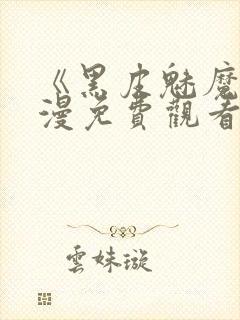 《黑皮魅魔
漫免費觀看
雲妹璇